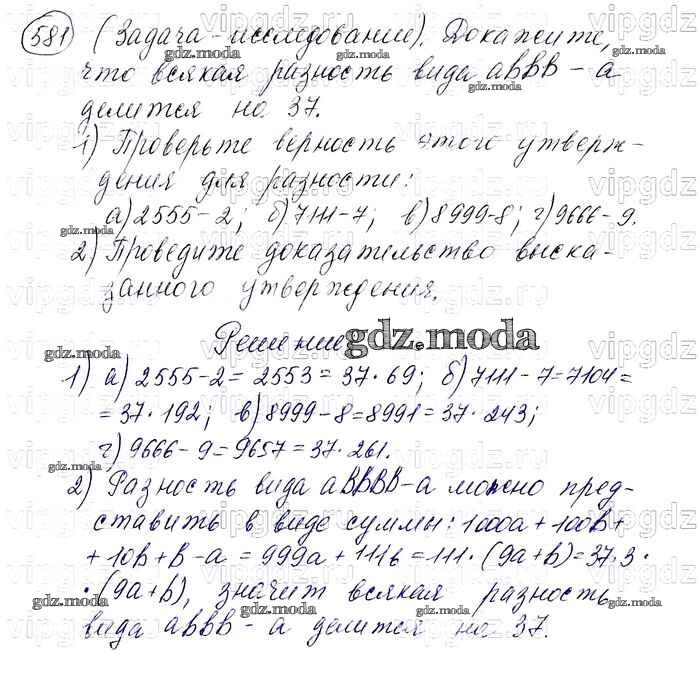 581 (Задача - исследование). Докажите,
что всякая разность вида аВВВ - а
делится на 37.
1) Проверьте верность этого утверж-
дения для разности:
а) 2555-2; б) 7111-7; в) 8999-8; г) 9666-9.
2) Проведите доказательство выска-
занного утверждения.
Решение.
1) а) 2555-2 = 2553 = 37·69; б) 7111-7=7104=
=37·192; в) 8999-8=8991=37·243;
г) 9666-9=9657=37·261.
2) Разность вида аВВВВ-а можно пред-
ставить в виде суммы: 1000а+100в+
+10в+в-а = 999а+111в=111·(9а+в)=37·3·
·(9а+в), значит всякая разность
вида аВВВ - а делится на 37.
gdz.moda
vipgdz.ru